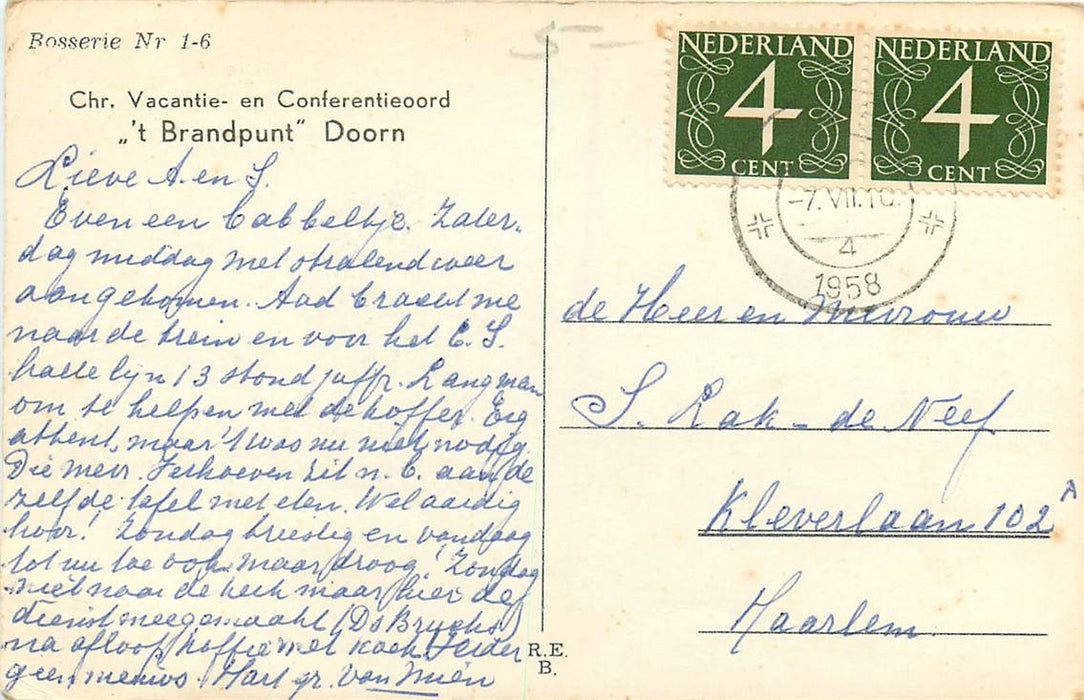 Bosserie Nr 1-6
Chr. Vacantie- en Conferentieoord
„'t Brandpunt" Doorn
Lieve A. en S.
Even een babbeltje. Zater-
dag middag met stralend weer
aangekomen. Aad bracht me
naar de trein en voor het C.S.
halte lijn 13 stond juffr. Langman
om te helpen met de koffer. Erg
attent, maar 't was nu niet nodig.
Die mevr. Verhoeven zit n.b. aan de
zelfde tafel met eten. Wel aardig
hoor! Zondag brieslig en vandaag
tot nu toe ook, maar droog. Zondag
niet naar de kerk maar hier de
dienst meegemaakt (Ds Bruchs)
na afloop koffie met koek. Verder
geen nieuws. Hart. gr. van Mien
R.E.
B.
NEDERLAND
4
CENT
NEDERLAND
4
CENT
-7.VII.
4
1958
de Heer en Mevrouw
S. Rak - de Neef
Kleverlaan 102 A
Haarlem.